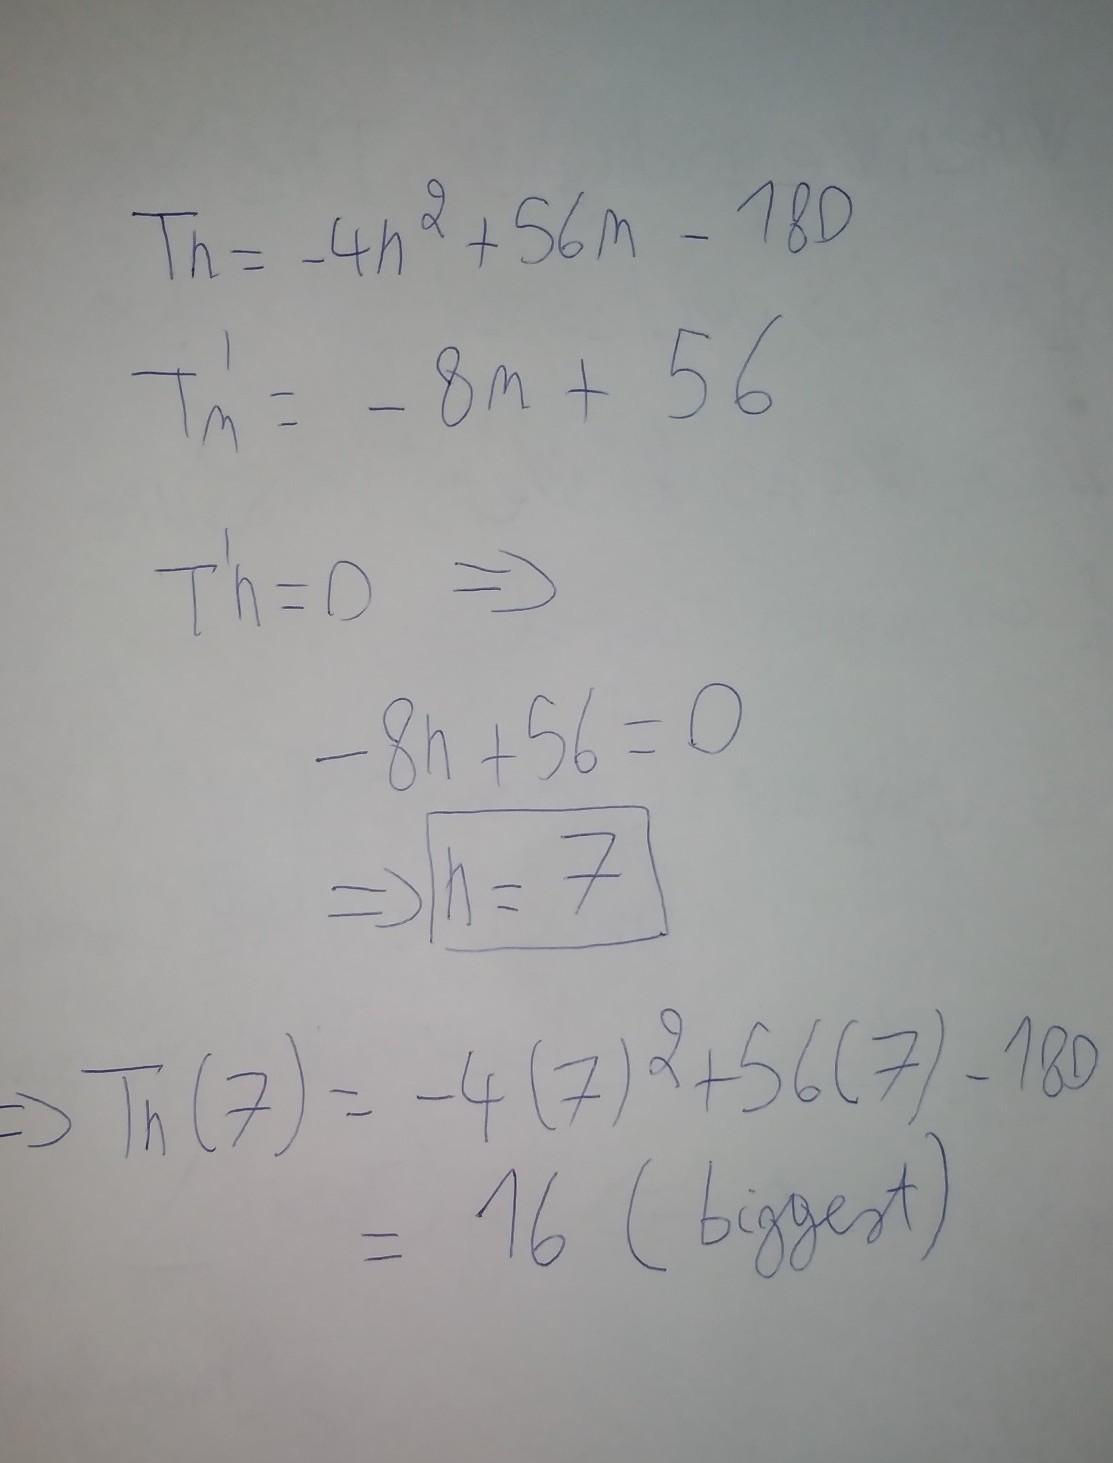 Tn = -4n² + 56n - 180
Tn' = - 8n + 56
T'n = 0 ⇒
-8n + 56 = 0
⇒ n = 7
⇒ Tn(7) = -4(7)² + 56(7) - 180
= 16 (biggest)